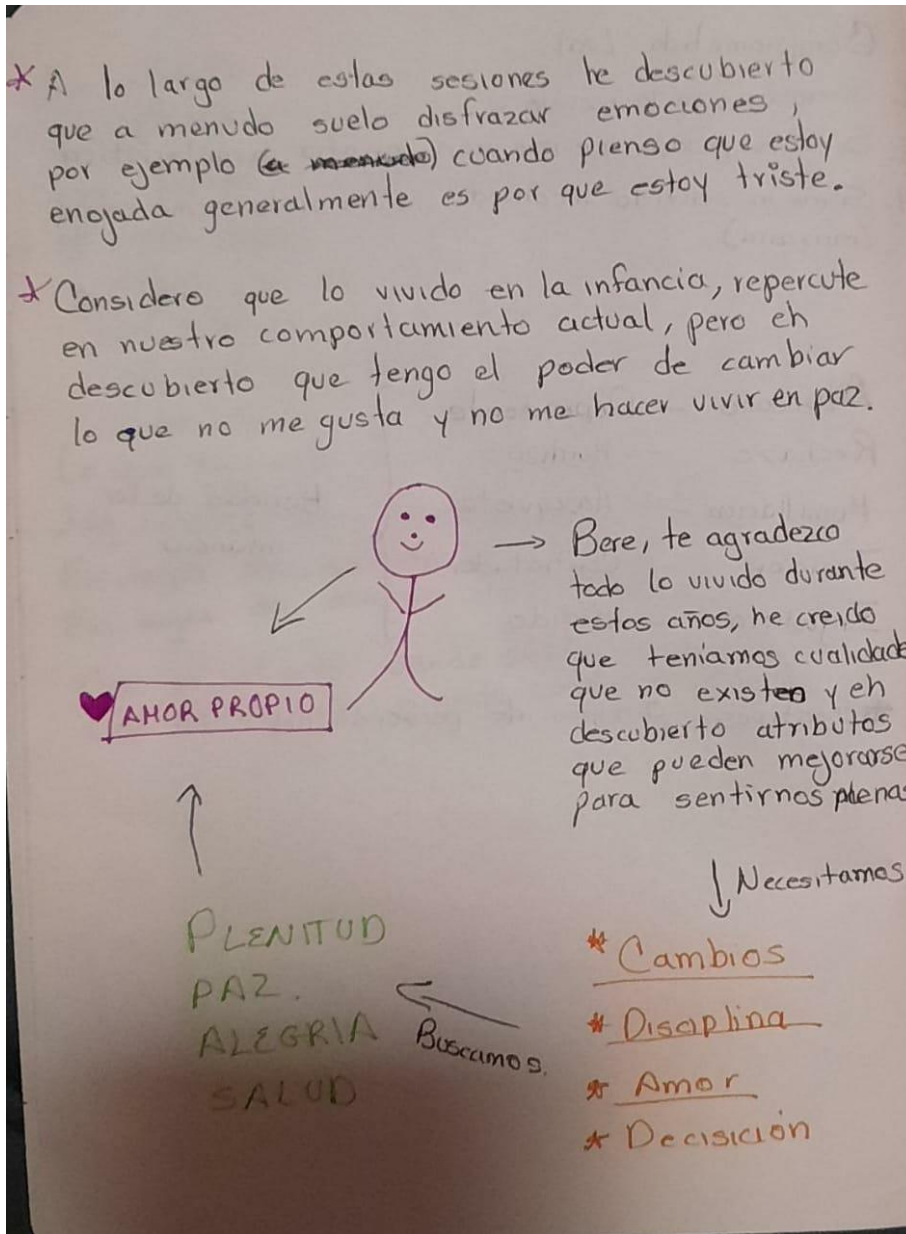 * A lo largo de estas sesiones he descubierto
que a menudo suelo disfrazar emociones,
por ejemplo (a menudo) cuando pienso que estoy
enojada generalmente es por que estoy triste.
* Considero que lo vivido en la infancia, repercute
en nuestro comportamiento actual, pero eh
descubierto que tengo el poder de cambiar
lo que no me gusta y no me hacer vivir en paz.
→ Bere, te agradezco
todo lo vivido durante
estos años, he creido
que teníamos cualidade
que no existen y eh
descubierto atributos
que pueden mejorarse
para sentirnos plenas
♥ AMOR PROPIO
↓ Necesitamos
* Cambios
* Disciplina
* Amor
* Decisición
Buscamos.
PLENITUD
PAZ.
ALEGRIA
SALUD